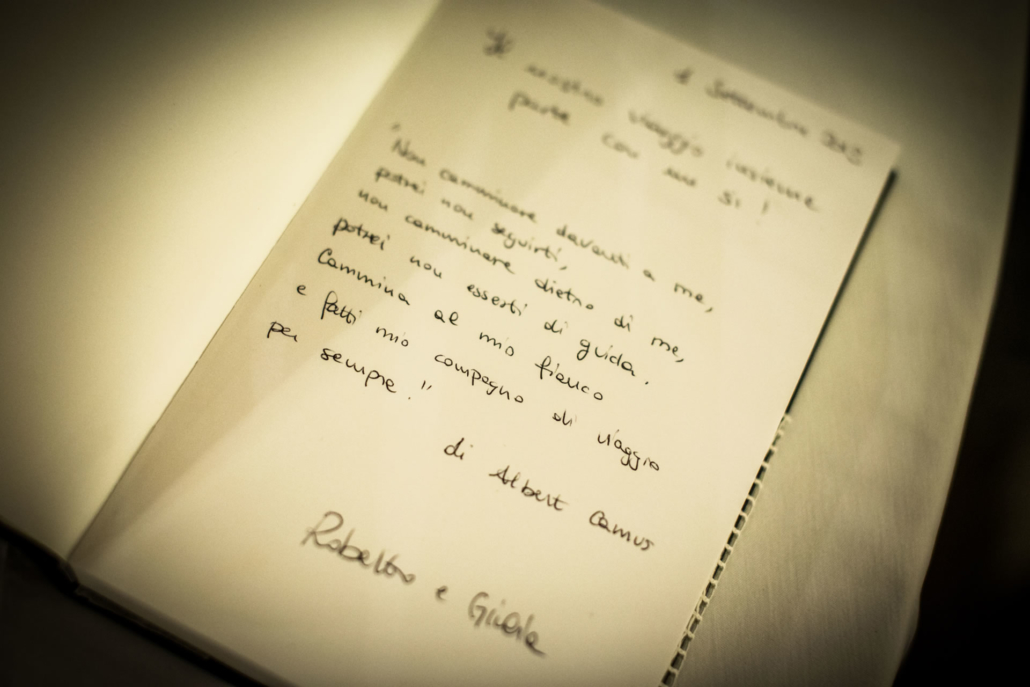 Settembre
Il nostro viaggio insieme
parte con un si!
"Non camminare davanti a me,
potrei non seguirti,
non camminare dietro di me,
potrei non esserti di guida.
Cammina al mio fianco
e fatti mio compagno di viaggio
per sempre."
di Albert Camus
e